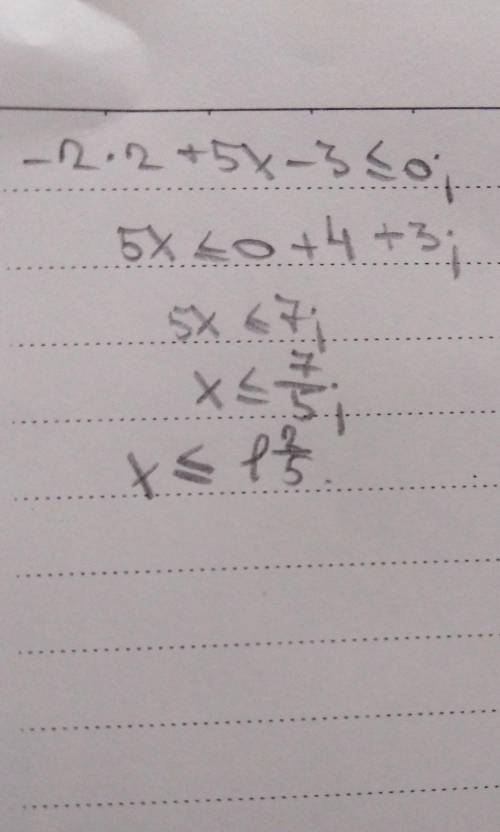 -2·2+5x-3≤0;
5x≤0+4+3;
5x≤7;
x≤7/5;
x≤1 2/5.